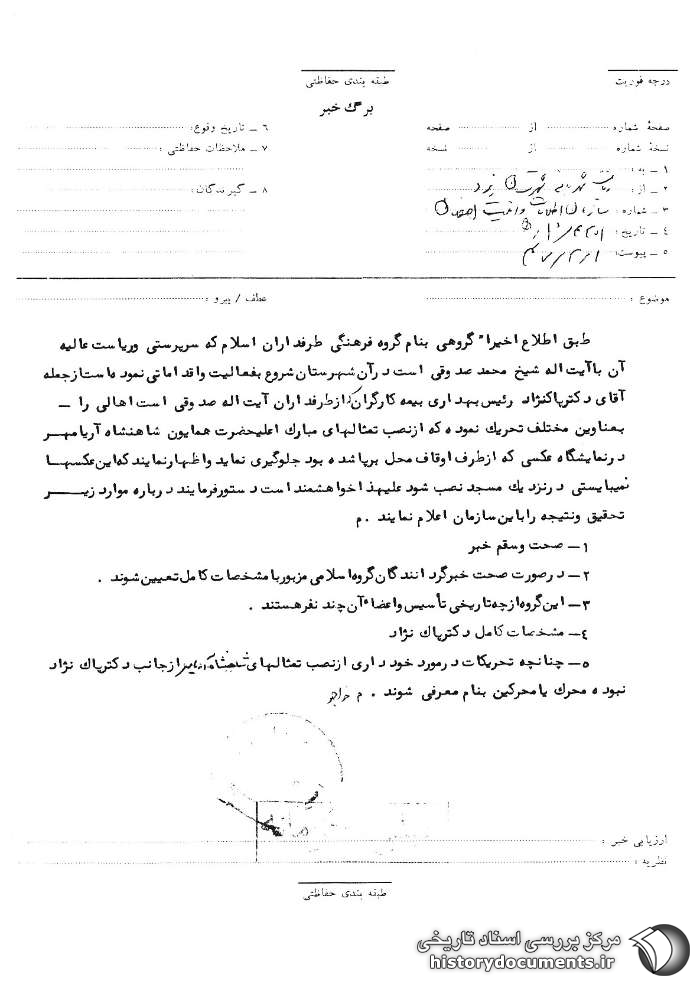 درجه فوریت
طبقه بندی حفاظتی
برگ خبر
صفحهٔ شماره از صفحه
نسخهٔ شماره از نسخه
۱ – به :
۲ – از : یزد
۳ – شماره :
٤ – تاریخ :
٥ – پیوست:
۶ – تاریخ وقوع:
۷ – ملاحظات حفاظتی :
۸ – گیرندگان:
موضوع :
عطف / پیرو :
طبق اطلاع اخیرا" گروهی بنام گروه فرهنگی طرفداران اسلام که سرپرستی وریاست عالیه
آن باآیت اله شیخ محمد صدوقی است درآن شهرستان شروع بفعالیت واقداماتی نموده است ازجمله
آقای دکترپاکنژاد رئیس بهداری بیمه کارگران که ازطرفداران آیت اله صدوقی است اهالی را –
بعناوین مختلف تحریک نموده که ازنصب تمثالهای مبارک اعلیحضرت همایون شاهنشاه آریامهر
درنمایشگاه عکسی که ازطرف اوقاف محل برپاشده بود جلوگیری نماید واظهارنمایند که این عکسها
نمیبایستی درنزدیک مسجد نصب شود علیهذا خواهشمند است دستورفرمایند درباره موارد زیر
تحقیق ونتیجه راباین سازمان اعلام نمایند . م
۱ – صحت وسقم خبر
۲ – درصورت صحت خبرگردانندگان گروه اسلامی مزبوربا مشخصات کامل تعیین شوند .
۳ – این گروه ازچه تاریخی تأسیس واعضاء آن چند نفرهستند .
٤ – مشخصات کامل دکترپاک نژاد
٥ – چنانچه تحریکات درمورد خودداری ازنصب تمثالهای شاهنشاه آریامهر ازجانب دکترپاک نژاد
نبوده محرک یا محرکین بنام معرفی شوند . م
ارزیابی خبر :
نظریه :
طبقه بندی حفاظتی
مرکز بررسی اسناد تاریخی
historydocuments.ir